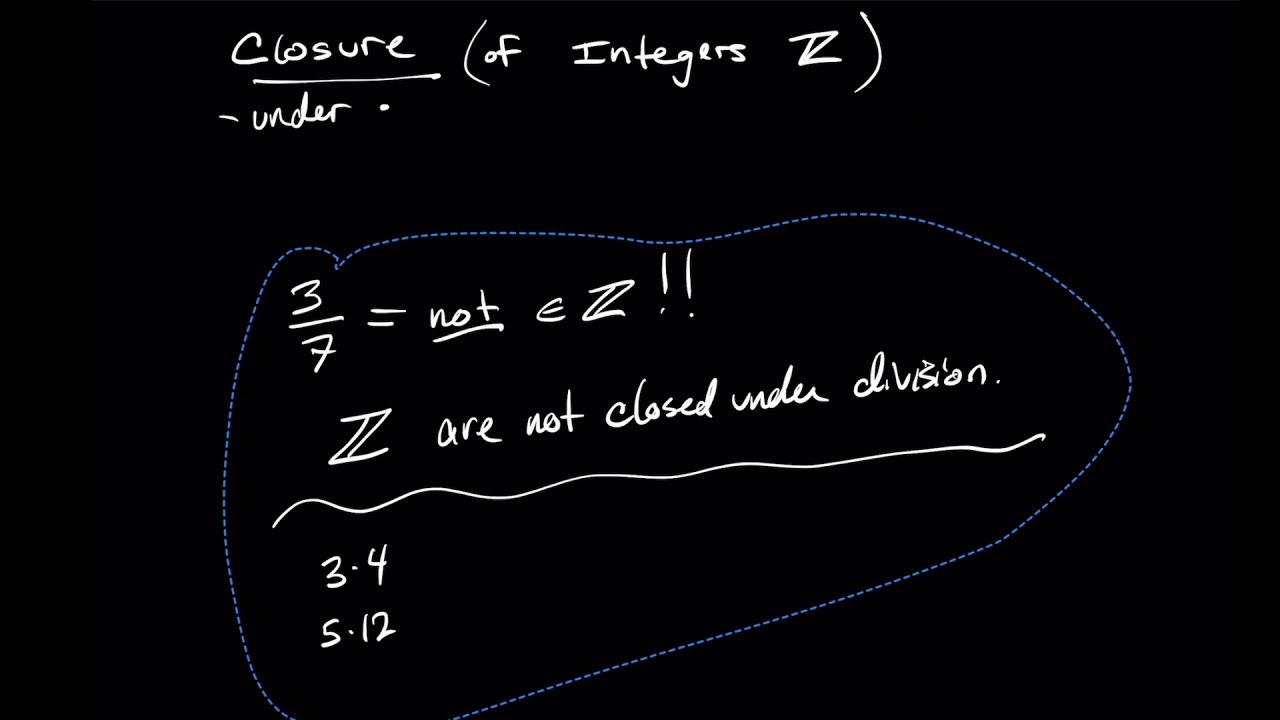 Closure (of Integers ℤ)
- under ·
3/7 = not ∈ ℤ !!
ℤ are not closed under division.
3·4
5·12